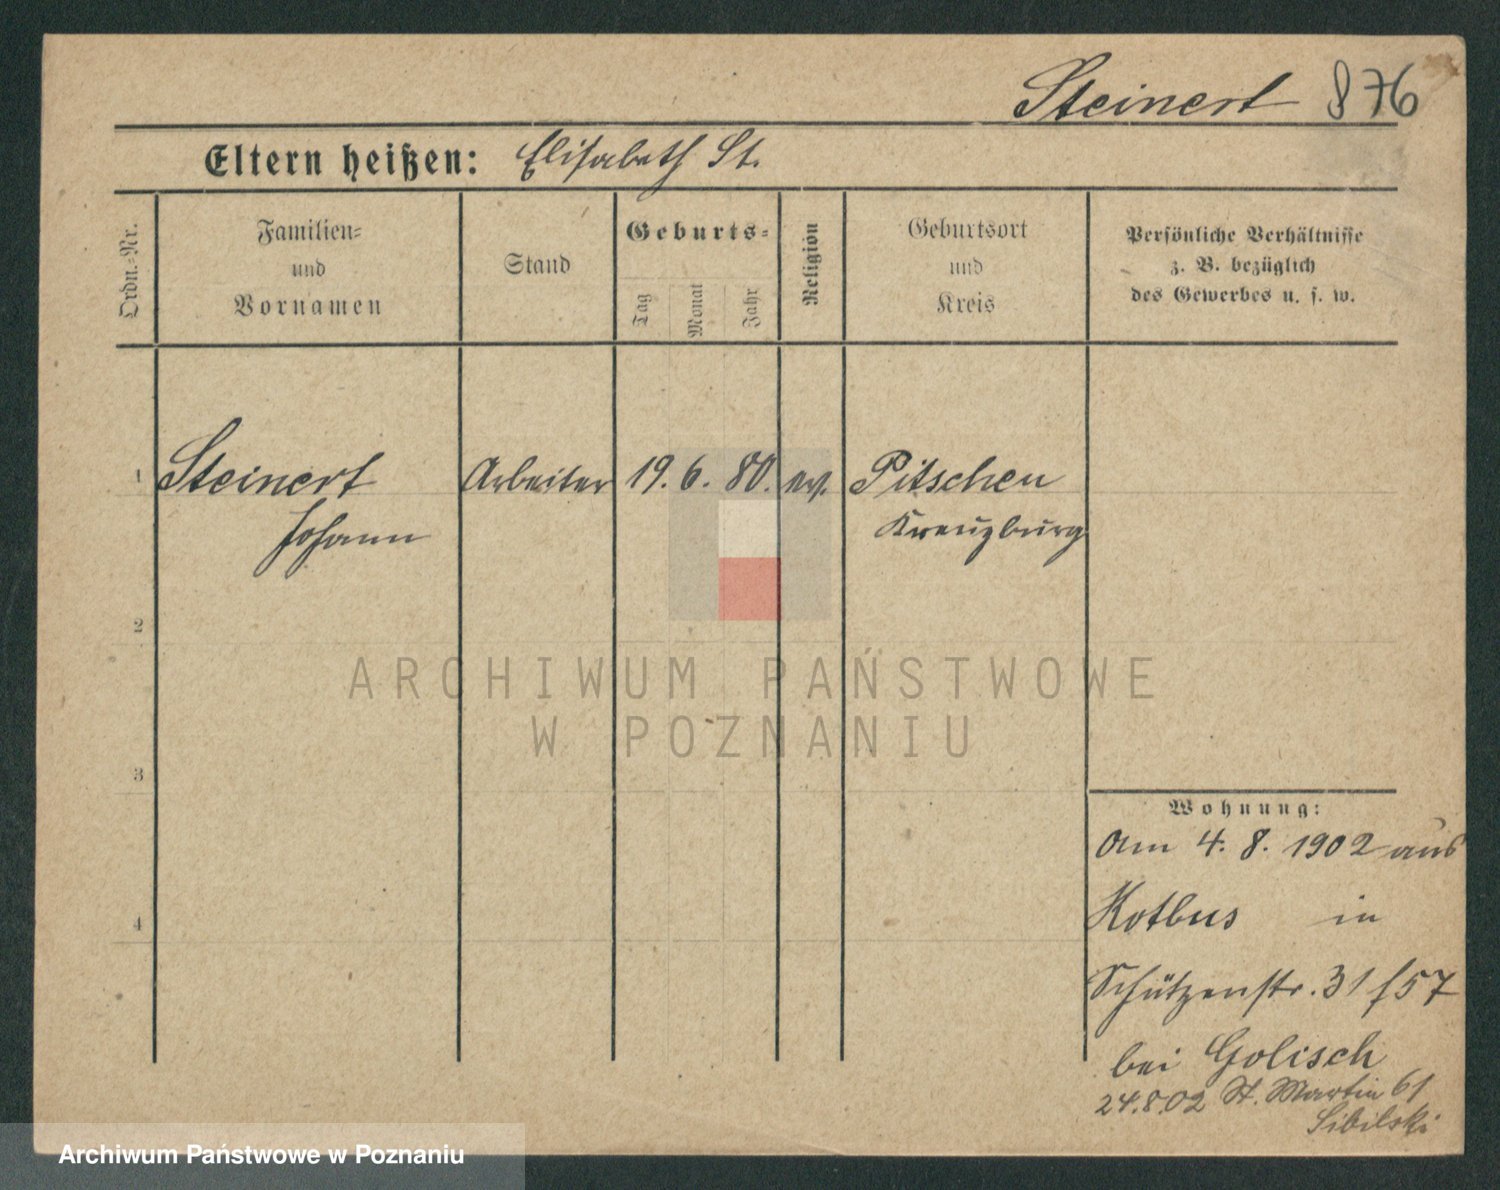 Steinert 876
Eltern heißen: Elisabeth St.
Ordn.-Nr.
Familien- und Vornamen
Stand
Geburts-
Tag
Monat
Jahr
Religion
Geburtsort und Kreis
Persönliche Verhältnisse
z. B. bezüglich
des Gewerbes u. s. w.
1 Steinert Arbeiter 19. 6. 80. ev. Pitschen
Johann Kreuzburg
2
3
4
Wohnung:
Am 4. 8. 1902 aus
Kotbus in
Schützenstr. 31 f57
bei Golisch
24.8.02 St. Martin 61
Sibilski
ARCHIWUM PAŃSTWOWE
W POZNANIU
Archiwum Państwowe w Poznaniu